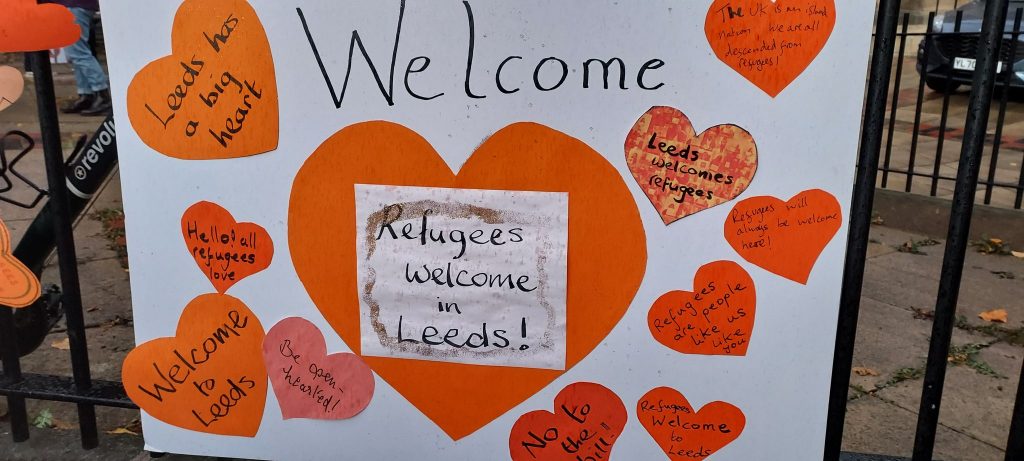 Welcome
Leeds has
a big
heart
The UK is an island
nation, we are all
descended from
refugees!
Leeds
welcomes
refugees
Refugees will
always be welcome
here!
Hello! all
refugees
love
Refugees
welcome
in
Leeds!
Refugees
are people
like us
like
you
Welcome
to
Leeds
Be open-
hearted!
No to
the
bill!!
Refugees
Welcome
to Leeds
revolu
YL70